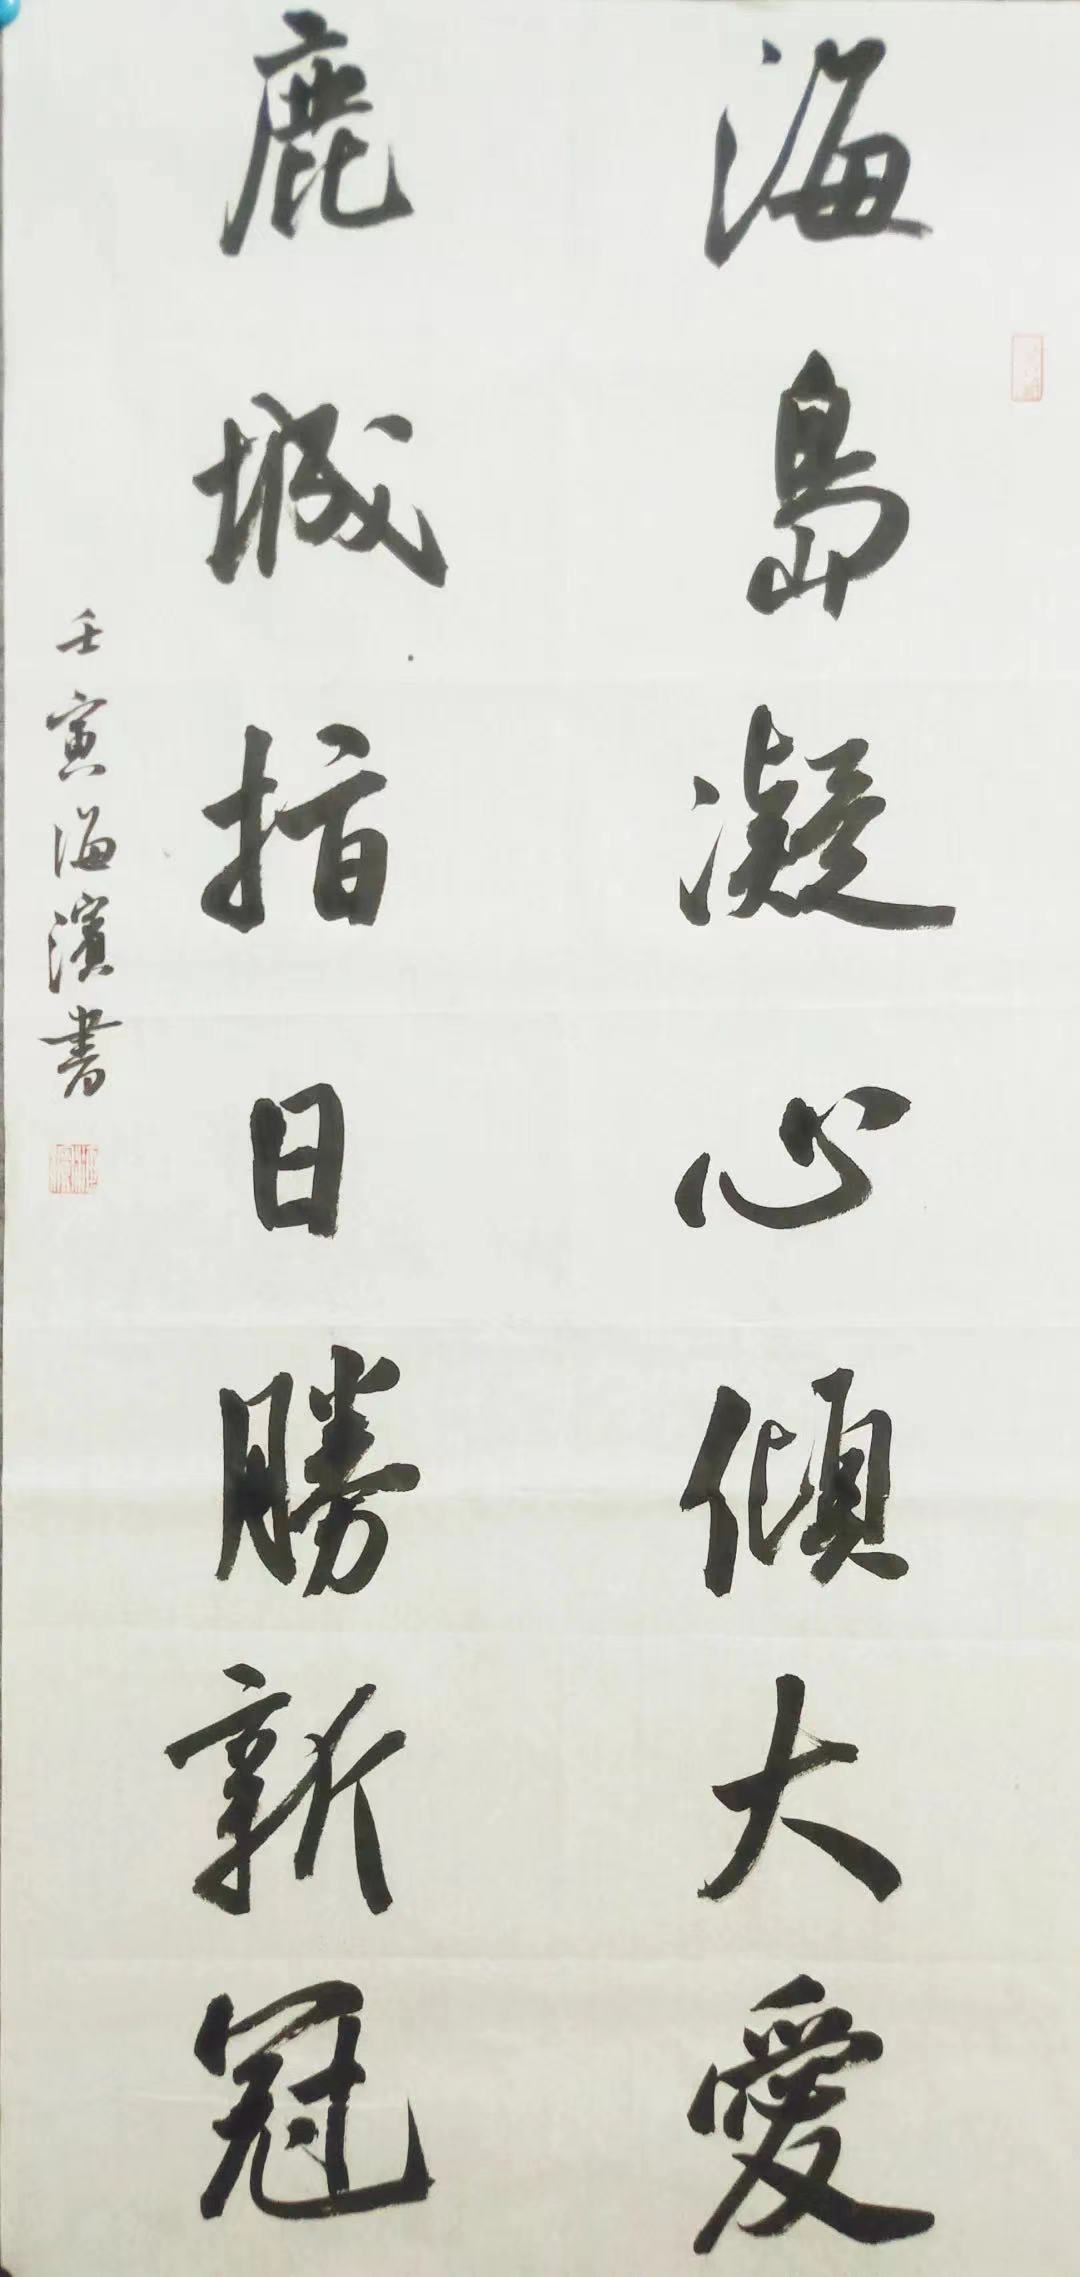 海島凝心傾大愛
鹿城指日勝新冠
壬寅海濱書